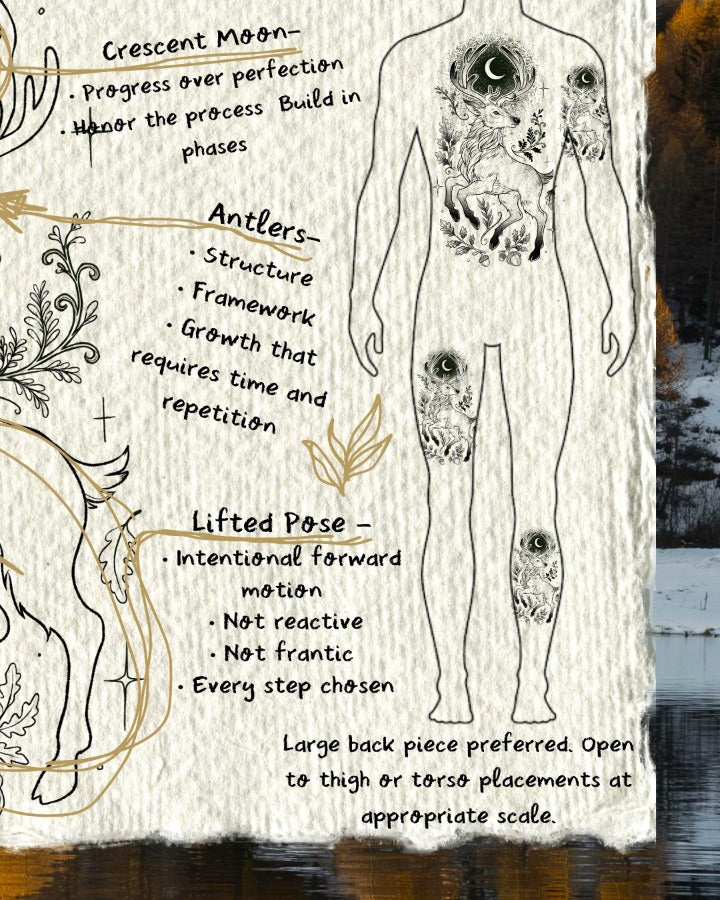 Crescent Moon-
• Progress over perfection
• Honor the process Build in
phases
Antlers-
• Structure
• Framework
• Growth that
requires time and
repetition
Lifted Pose -
• Intentional forward
motion
• Not reactive
• Not frantic
• Every step chosen
Large back piece preferred. Open
to thigh or torso placements at
appropriate scale.